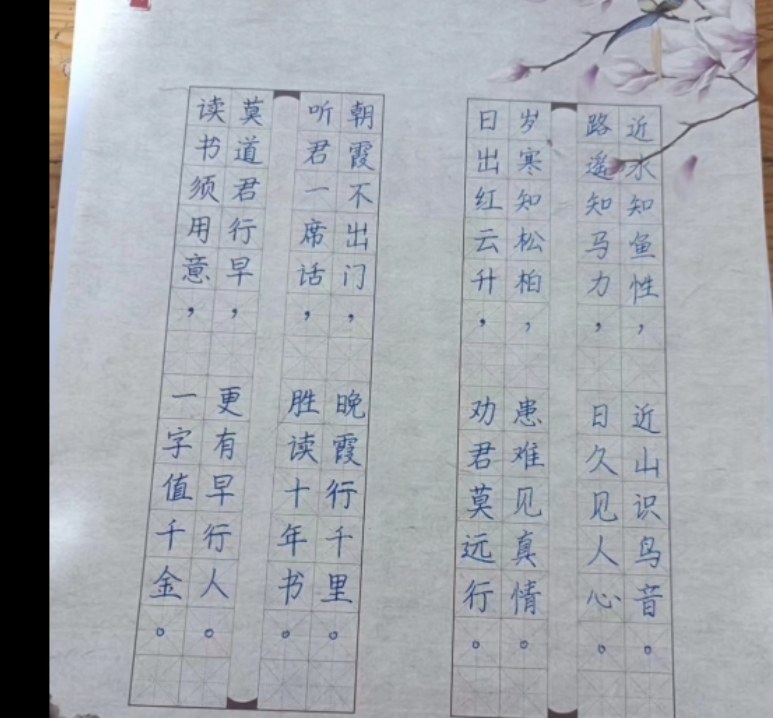 近水知鱼性，近山识鸟音。
路遥知马力，日久见人心。
岁寒知松柏，患难见真情。
日出红云升，劝君莫远行。
朝霞不出门，晚霞行千里。
听君一席话，胜读十年书。
莫道君行早，更有早行人。
读书须用意，一字值千金。